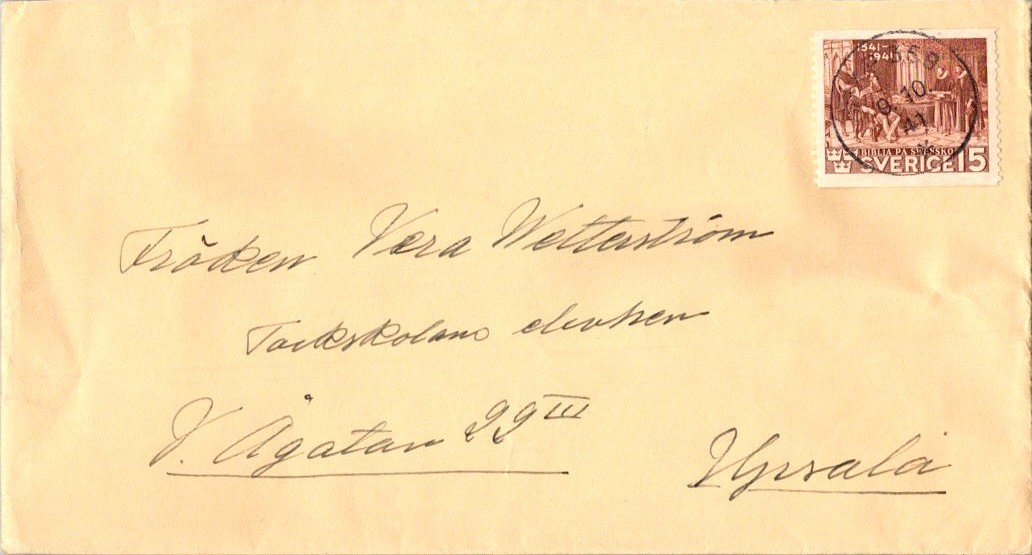 1541-
1941
358
9.10.
41
BIBLIA PÅ SVENSKA
SVERIGE 15
Fröken Vera Wetterström
elevhem
V. Ågatan 29 III
Upsala